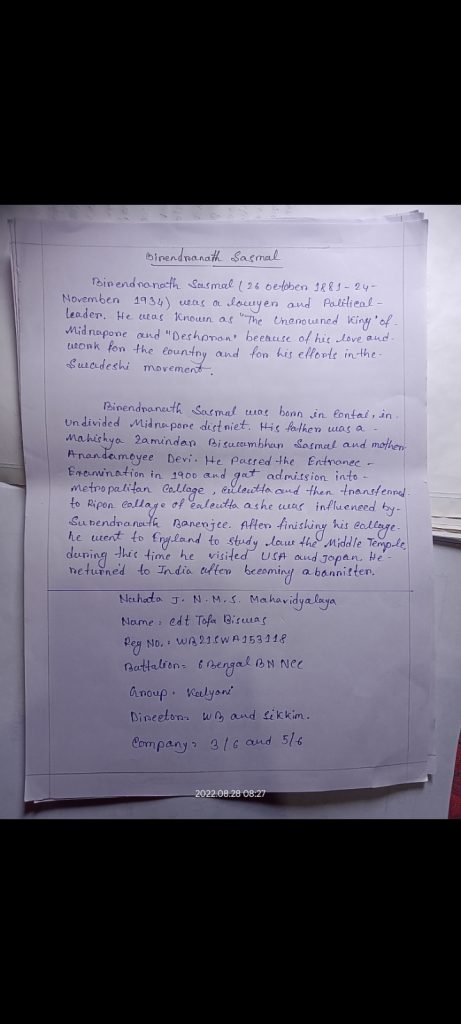 Birendranath Sasmal
Birendranath Sasmal (26 october 1881 - 24 -
November 1934) was a lawyer and Political -
leader. He was known as "The Uncrowned King" of -
Midnapore and "Deshpran" because of his love and -
work for the country and for his efforts in the -
Swadeshi movement.
Birendranath Sasmal was born in Contai, in -
undivided Midnapore district. His father was a -
Mahishya Zamindar Biswambhar Sasmal and mother
Anandamoyee Devi. He passed the Entrance -
Examination in 1900 and got admission into -
metropalitan Collage, Culcutta and then transferred
to Ripon collage of calcutta ashe was influenced by -
Surendranath Banerjee. After finishing his collage.
he went to England to study law the Middle Temple
during this time he visited USA and Japan. He -
returned to India after becoming a bannister.
Nahata J. N. M. S. Mahavidyalaya
Name: cdt Tofa Biswas
Reg No. : WB21SWA153118
Battalion = 6 Bengal BN NCC
Group. Kalyani
Director = WB and Sikkim.
Company = 3/6 and 5/6
2022.08.28 08:27